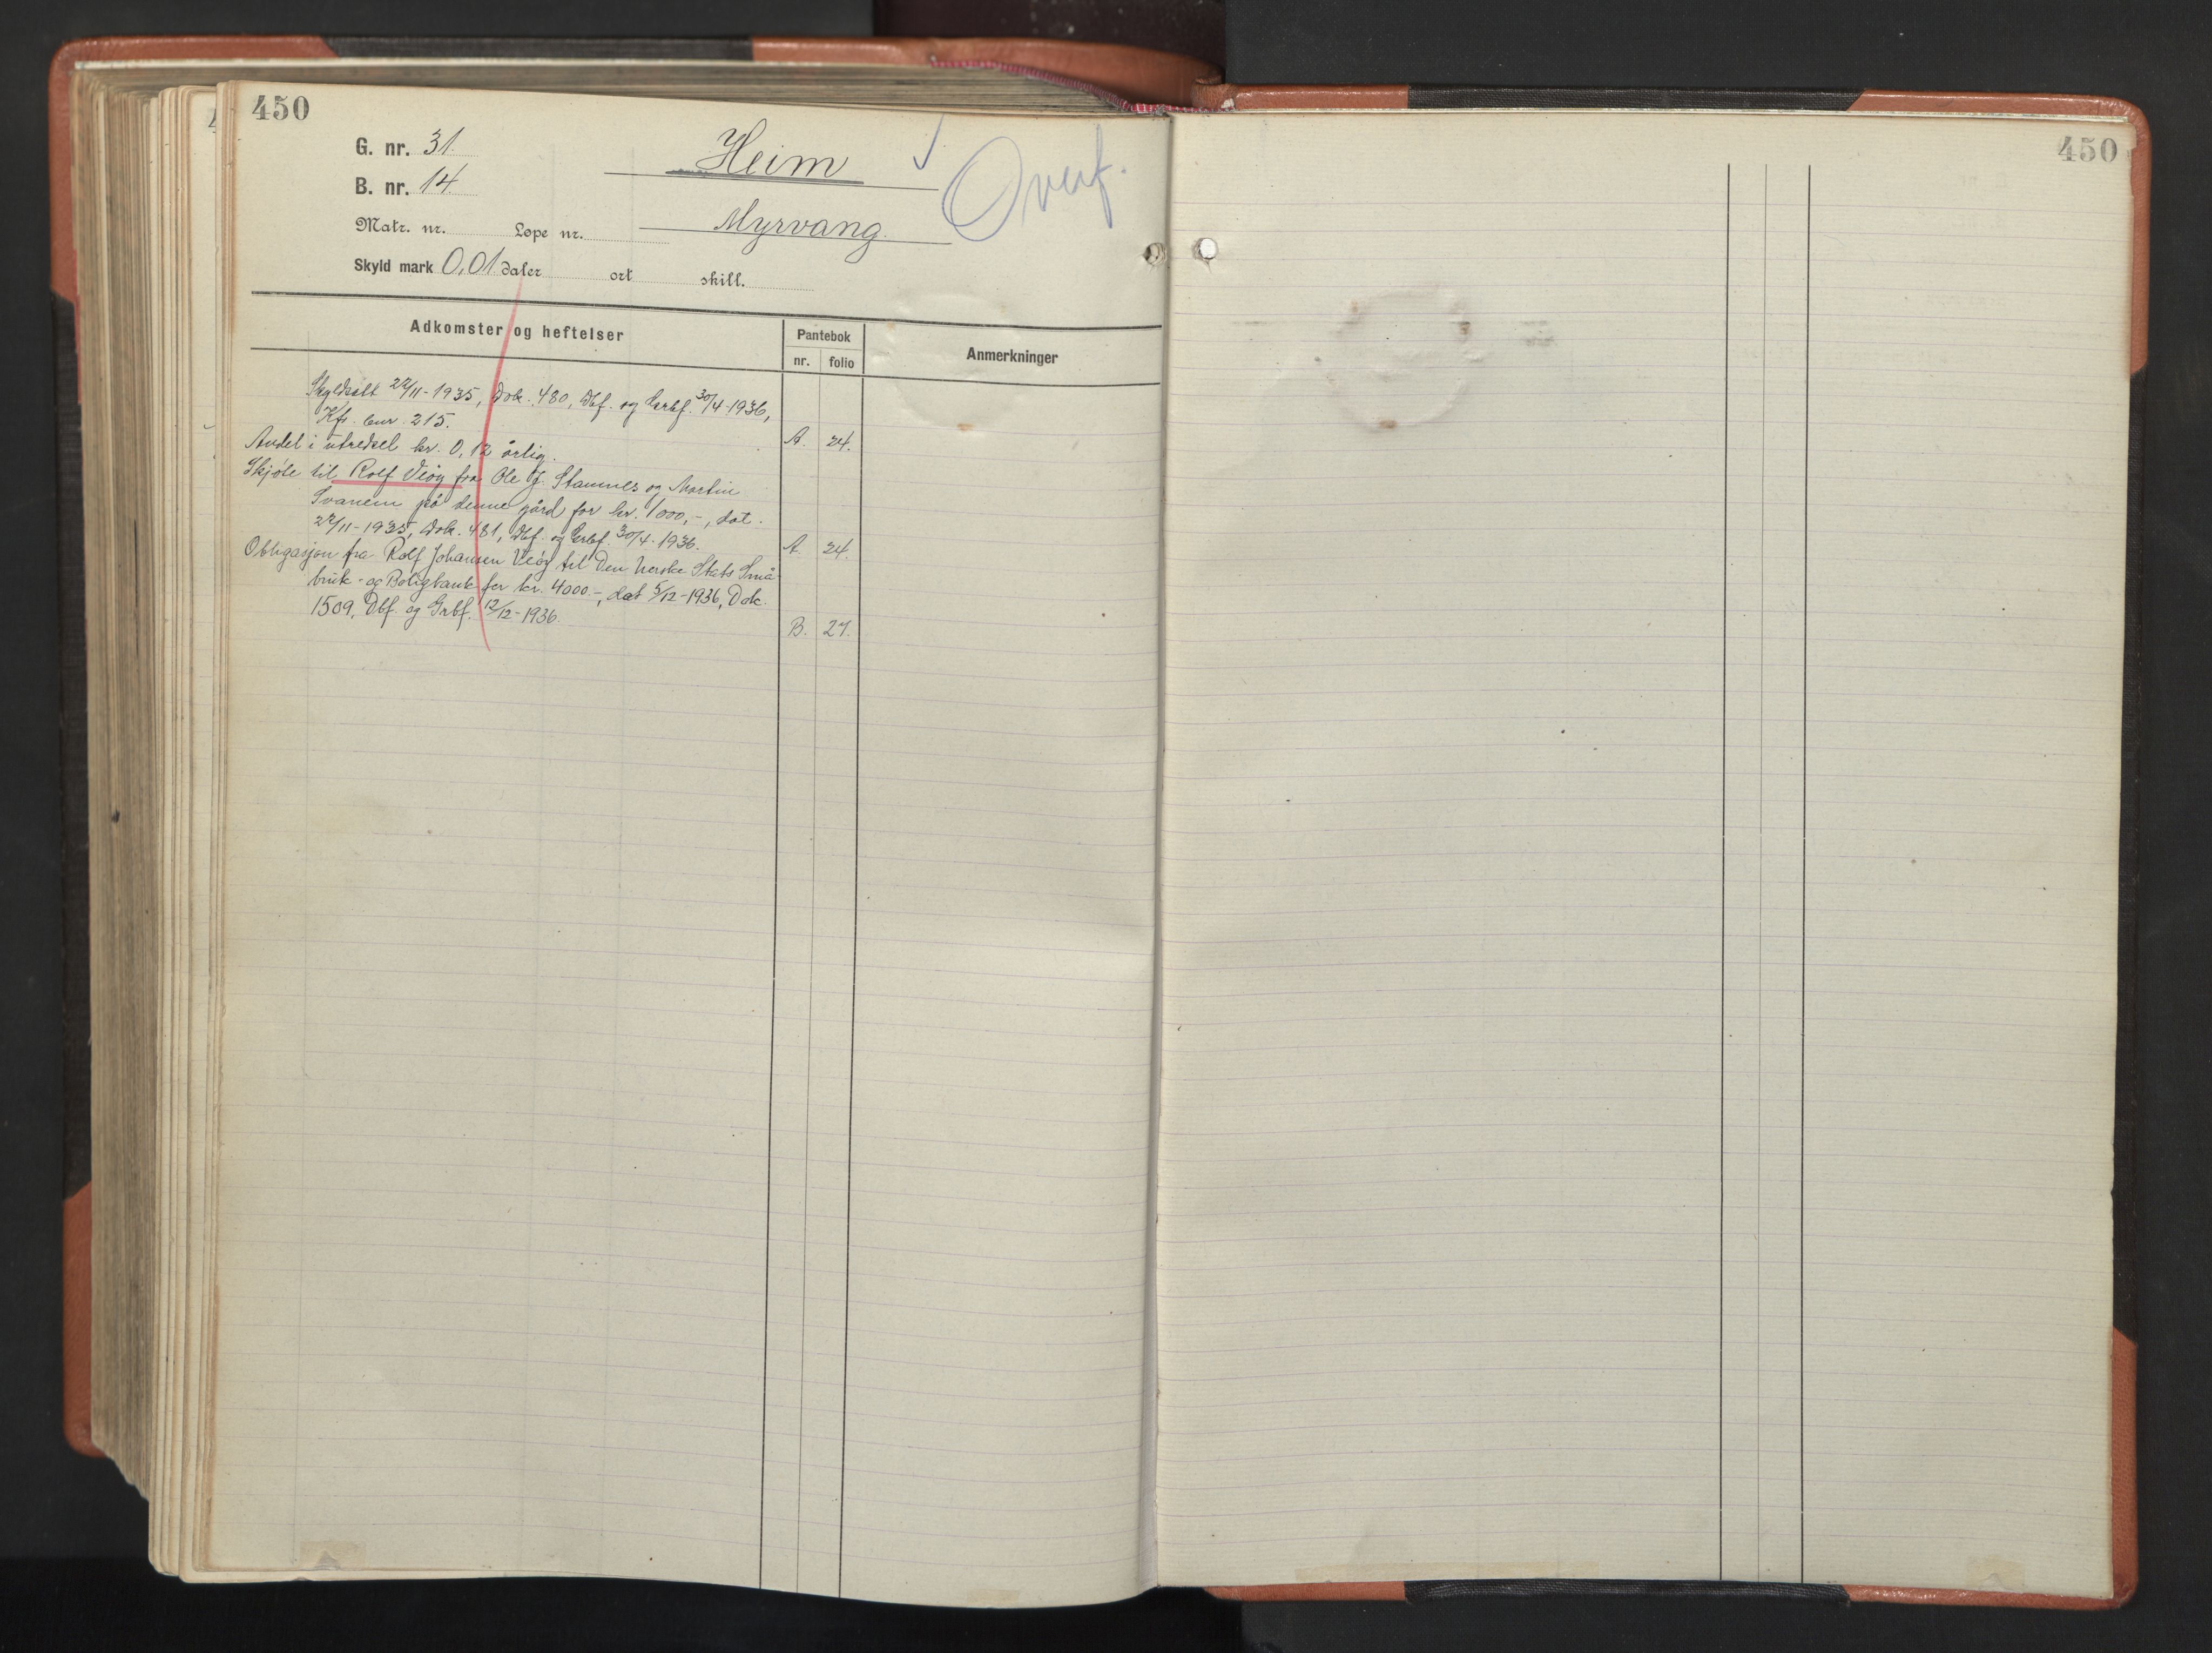 450
G. nr. 31.
Heim
Overf.
B. nr. 14.
Matr. nr. Løpe nr.
Myrvang.
Skyld mark 0,01 daler ort skill.
Adkomster og heftelser
Pantebok
nr. folio
Anmerkninger
22/11-1935, Dok. 480, Dbf. og Grbf. 30/4-1936,
Kfs. 215.
Andel i utredsel kr. 0,12 årlig. A. 24.
Skjøte til Rolf Viøy fra Ole J. Stamnes og Martin
Svanem på denne gård for kr. 1000,-, dat.
22/11-1935, Dok. 481, Dbf. og Grbf. 30/4-1936. A. 24.
Obligasjon fra Rolf Johansen Viøy til Den Norske Stats Små
bruk- og Boligbank for kr. 4000.-, dat 5/12-1936, Dok.
1509, Dbf. og Grbf. 12/12-1936. B. 27.
450